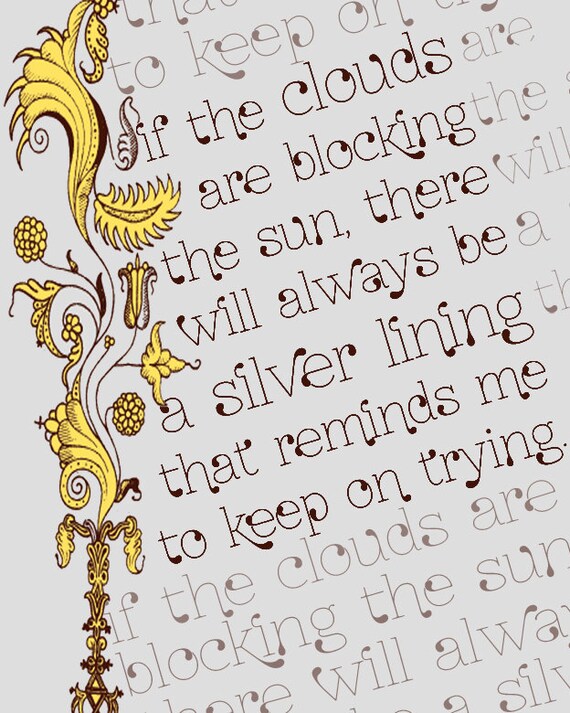 that
to keep on try
if the clouds are
are blocking the s
the sun, there will
will always be a s
a silver lining th
that reminds me
to keep on trying.
if the clouds are
blocking the sun
there will alway
be a silv